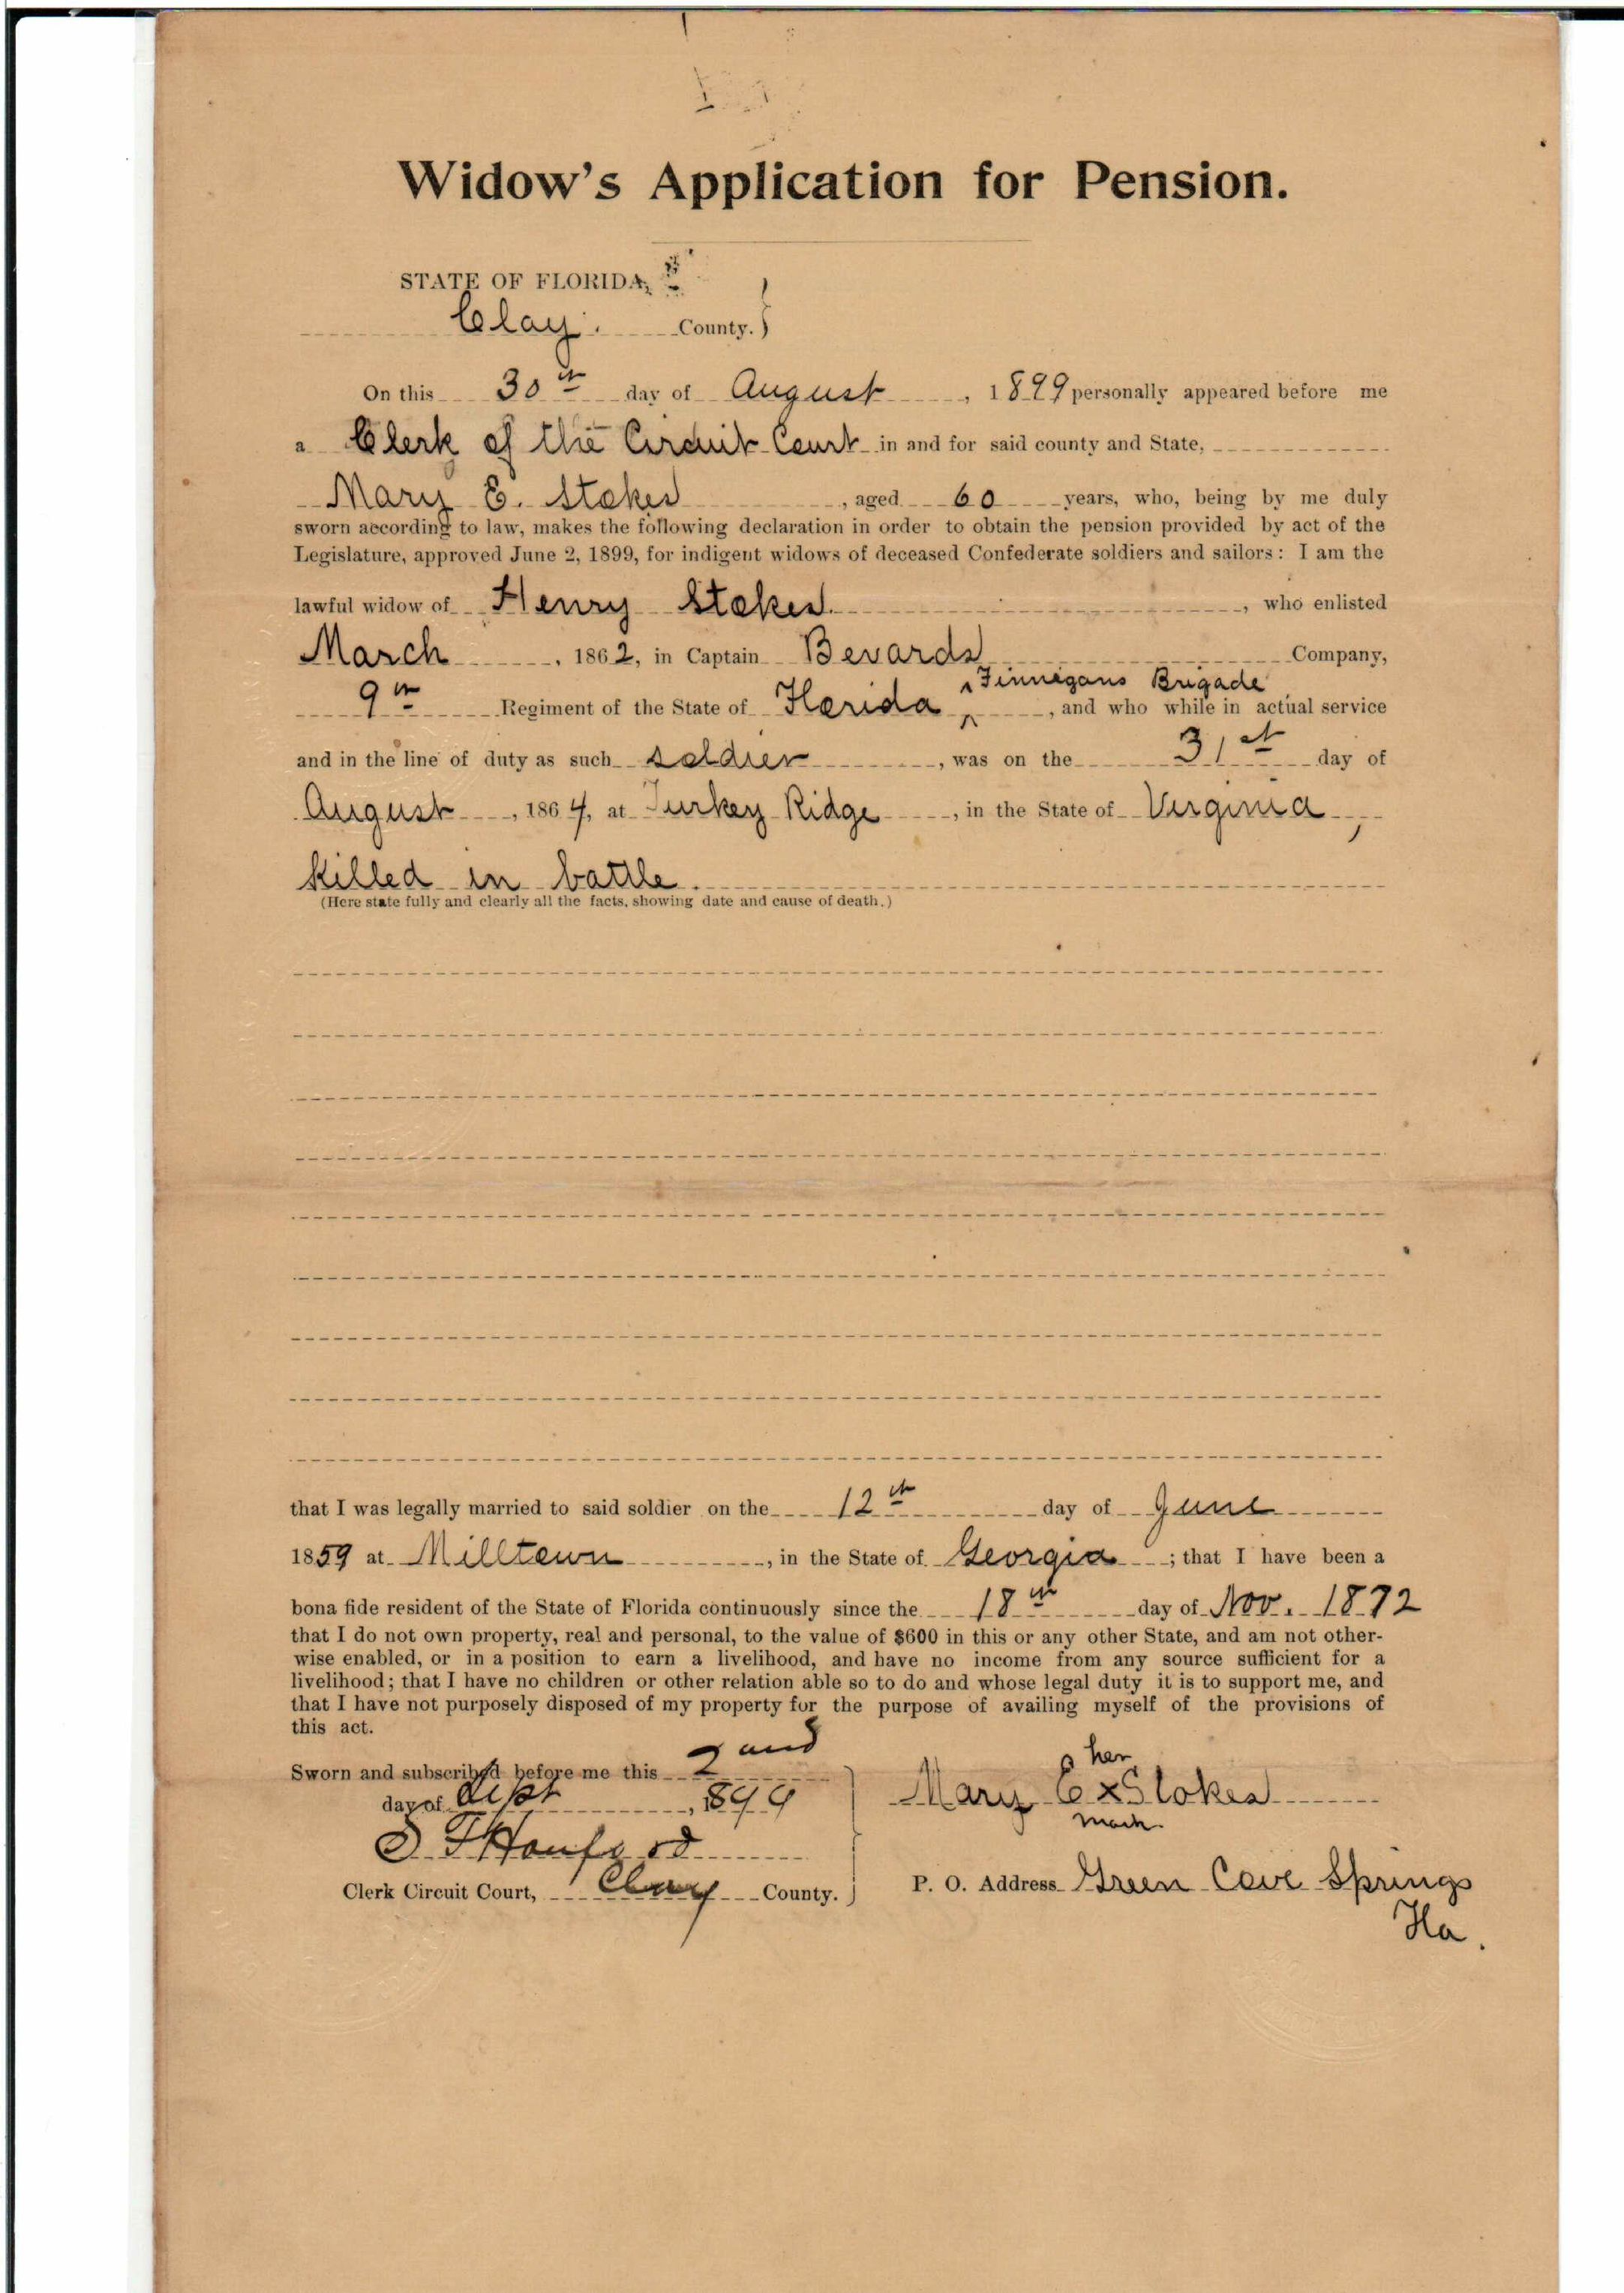 Widow's Application for Pension.
STATE OF FLORIDA,
Clay. County.
On this 30th day of August, 1899 personally appeared before me
a Clerk of the Circuit Court in and for said county and State,
Mary E. Stokes, aged 60 years, who, being by me duly
sworn according to law, makes the following declaration in order to obtain the pension provided by act of the
Legislature, approved June 2, 1899, for indigent widows of deceased Confederate soldiers and sailors: I am the
lawful widow of Henry Stokes., who enlisted
March, 1862, in Captain Bevards Company,
Finnigans Brigade
9th Regiment of the State of Florida, and who while in actual service
and in the line of duty as such soldier, was on the 31st day of
August, 1864, at Turkey Ridge, in the State of Virginia,
Killed in battle.
(Here state fully and clearly all the facts, showing date and cause of death.)
that I was legally married to said soldier on the 12th day of June
1859 at Milltown, in the State of Georgia; that I have been a
bona fide resident of the State of Florida continuously since the 18th day of Nov. 1872
that I do not own property, real and personal, to the value of $600 in this or any other State, and am not other-
wise enabled, or in a position to earn a livelihood, and have no income from any source sufficient for a
livelihood; that I have no children or other relation able so to do and whose legal duty it is to support me, and
that I have not purposely disposed of my property for the purpose of availing myself of the provisions of
this act.
Sworn and subscribed before me this 2nd
day of Sept, 1899
Clerk Circuit Court, Clay County.
her
Mary E x Stokes
mark.
P. O. Address Green Cove Springs
Fla.